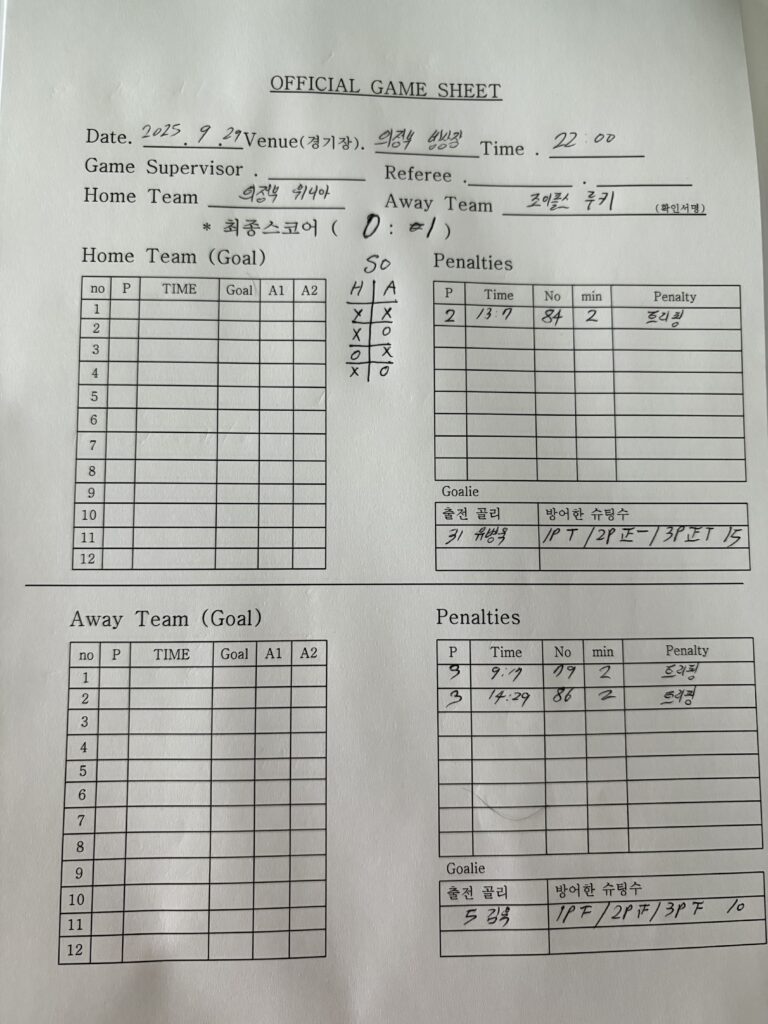 OFFICIAL GAME SHEET
Date. 2025. 9. 29 Venue(경기장). 의정부 빙상장 Time . 22:00
Game Supervisor . Referee . .
Home Team 의정부 위니아 Away Team 조이풀스 루키 (확인서명)
* 최종스코어 ( 0 : 1 )
Home Team (Goal)
no P TIME Goal A1 A2
1
2
3
4
5
6
7
8
9
10
11
12
SO
H A
X X
X O
O X
X O
Penalties
P Time No min Penalty
2 13:7 84 2 트리핑
Goalie
출전 골리 방어한 슈팅수
31 유병욱 1P T / 2P 正一 / 3P 正T 15
Away Team (Goal)
no P TIME Goal A1 A2
1
2
3
4
5
6
7
8
9
10
11
12
Penalties
P Time No min Penalty
3 9:17 79 2 트리핑
3 14:29 86 2 트리핑
Goalie
출전 골리 방어한 슈팅수
5 김욱 1P 下 / 2P 正 / 3P 下 10